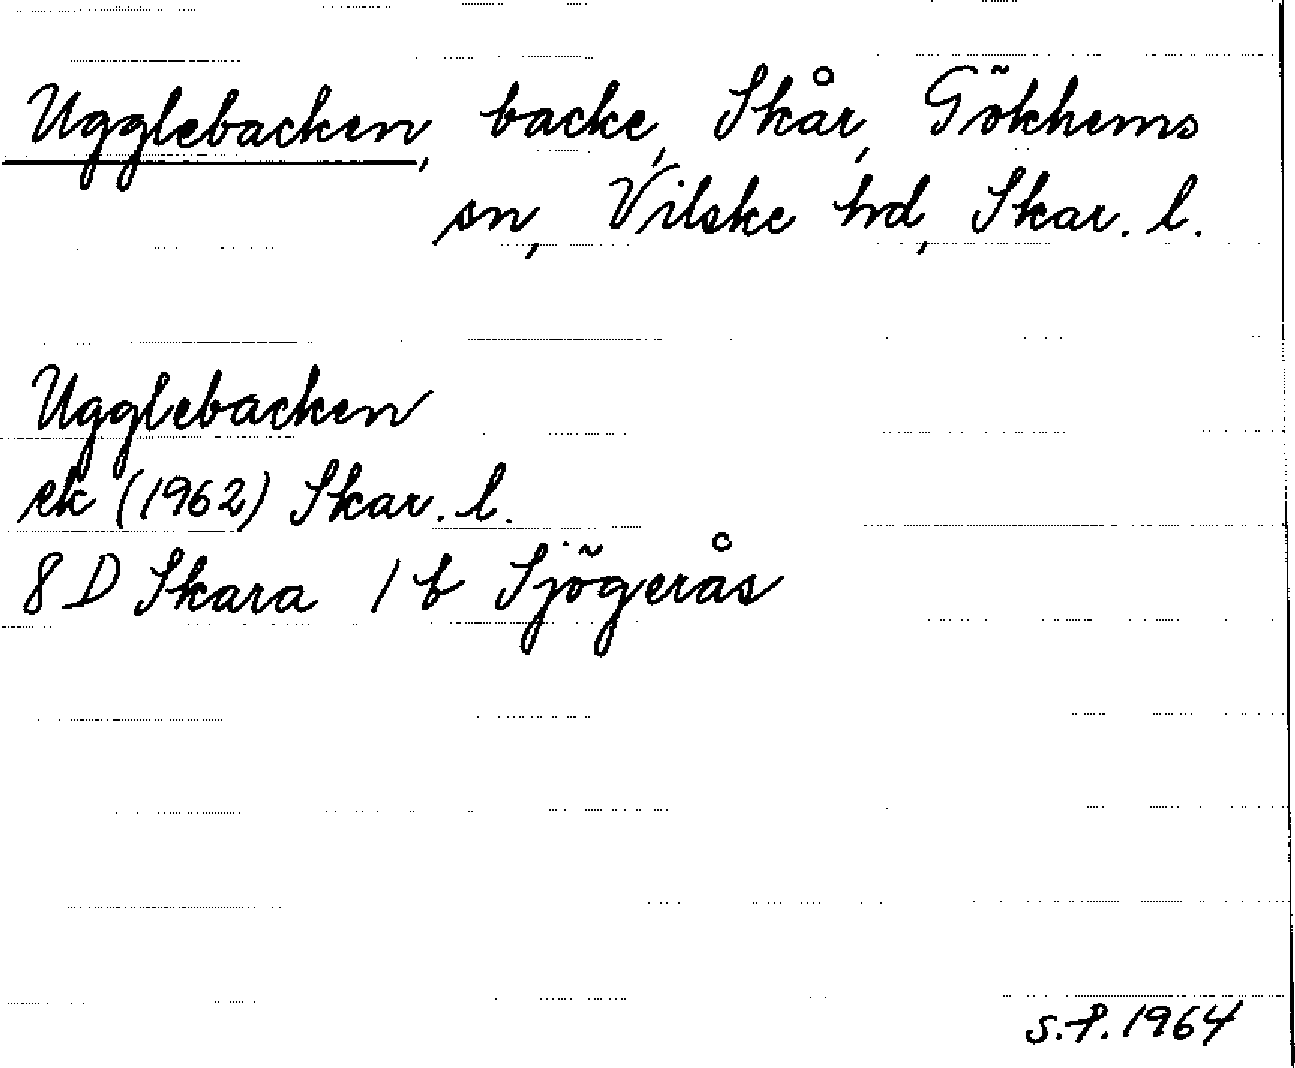 Ugglebacken, backe, Skår, Gökhems
sn, Vilske hd, Skar. l.
Ugglebacken
ek (1962) Skar. l.
8 D Skara 1 b Sjögerås
S.P. 1964